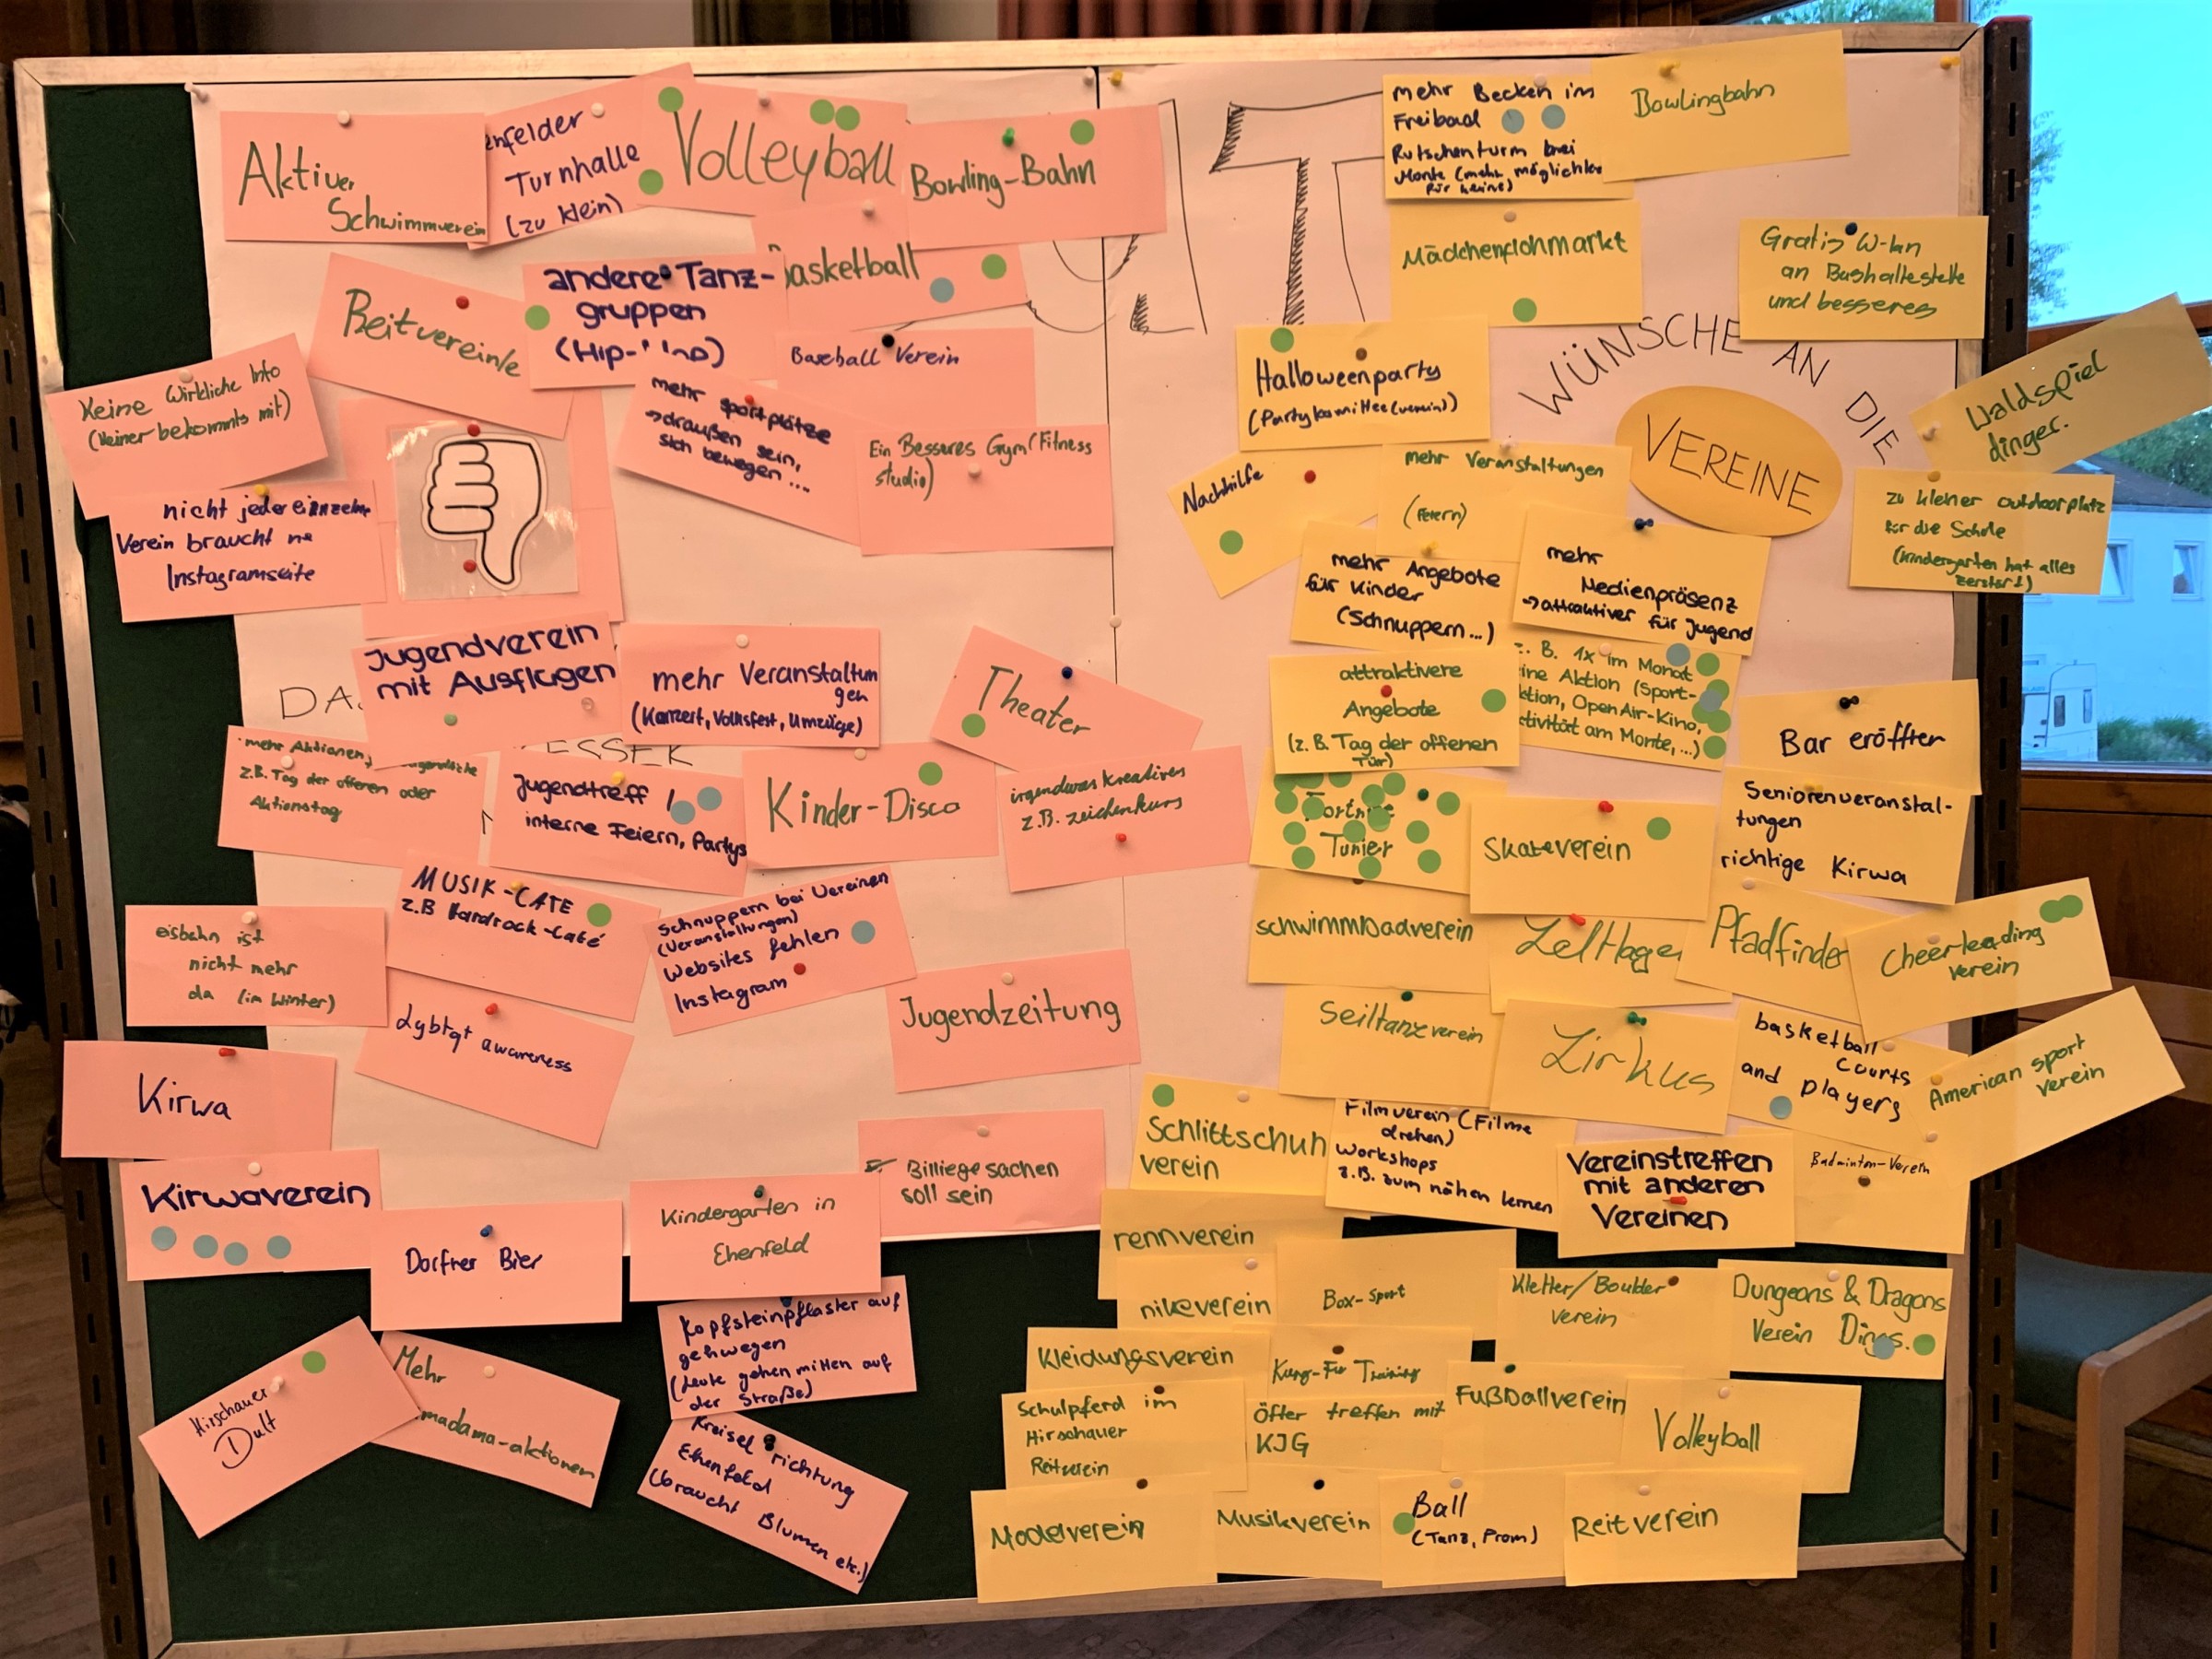 Aktiver
Schwimmverein
enfelder
Turnhalle
(zu klein)
Volleyball
Bowling-Bahn
Basketball
Reitvereinle
andere Tanz-
gruppen
Baseball Verein
Keine Wirkliche Info
(Keiner bekommts mit)
mehr sportplätze
→draußen sein,
sich bewegen ...
Ein Besseres Gym(Fitness
studio)
nicht jeder einzelne
Verein braucht ne
Instagramseite
Jugendverein
mit Ausflügen
mehr Veranstaltun
gen
(Konzert, Volksfest, Umzüge)
Theater
DA
ESSER
mehr Aktionen,
z.B. Tag der offenen oder
Aktionstag
Jugendtreff /
interne Feiern, Partys
Kinder-Disco
irgendwas kreatives
z.B. zeichenkurs
MUSIK-CAFE
z.B Hardrock-Café
schnuppern bei Vereinen
(Veranstaltungen)
Websites fehlen
Instagram
eisbahn ist
nicht mehr
da (im Winter)
Lgbtqt awareness
Jugendzeitung
Kirwa
Kirwaverein
Billiege sachen
soll sein
Dorfner Bier
Kindergarten in
Ehenfeld
Kopfsteinpflaster auf
gehwegen
(Leute gehen mitten auf
der Straße)
Hirschauer
Dult
Mehr
madama-aktionen
Kreisel richtung
Ehenfeld
(braucht Blumen etc.)
UT
mehr Becken im
Freibad
Rutschenturm bei
Monte (mehr möglichkei
für kleine)
Bowlingbahn
Mädchenflohmarkt
Gratis W-lan
an Bushaltestelle
und besseres
WÜNSCHE AN DIE
VEREINE
Halloweenparty
(Partykomittee(verein))
Waldspiel
dinger.
Nachhilfe
mehr Veranstaltungen
(Feiern)
zu kleiner outdoorplatz
für die Schule
(Kindergarten hat alles
zerstört)
mehr Angebote
für Kinder
(Schnuppern...)
mehr
Medienpräsenz
→attraktiver für Jugend
attraktivere
Angebote
(z.B. Tag der offenen
Tür)
z. B. 1x im Monat
eine Aktion (Sport-
ktion, OpenAir-Kino,
ctivität am Monte,...)
Bar eröffnen
Fortnite
Tunier
Skateverein
Seniorenveranstal-
tungen
richtige Kirwa
schwimmbadverein
Zeltlager
Pfadfinder
Cheerleading
verein
Seiltanzverein
Zirkus
basketball
Courts
and players
American sport
verein
Schlittschuh
verein
Filmverein (Filme
drehen)
Workshops
z.B. zum nähen lernen
Vereinstreffen
mit anderen
Vereinen
Badminton-Verein
rennverein
nikeverein
Box-Sport
Kletter/Boulder
verein
Dungeons & Dragons
Verein Dings.
Kleidungsverein
Kung-Fu Training
Schulpferd im
Hirschauer
Reitverein
Öfter treffen mit
KJG
Fußballverein
Volleyball
Modelverein
Musikverein
Ball
(Tanz, Prom)
Reitverein